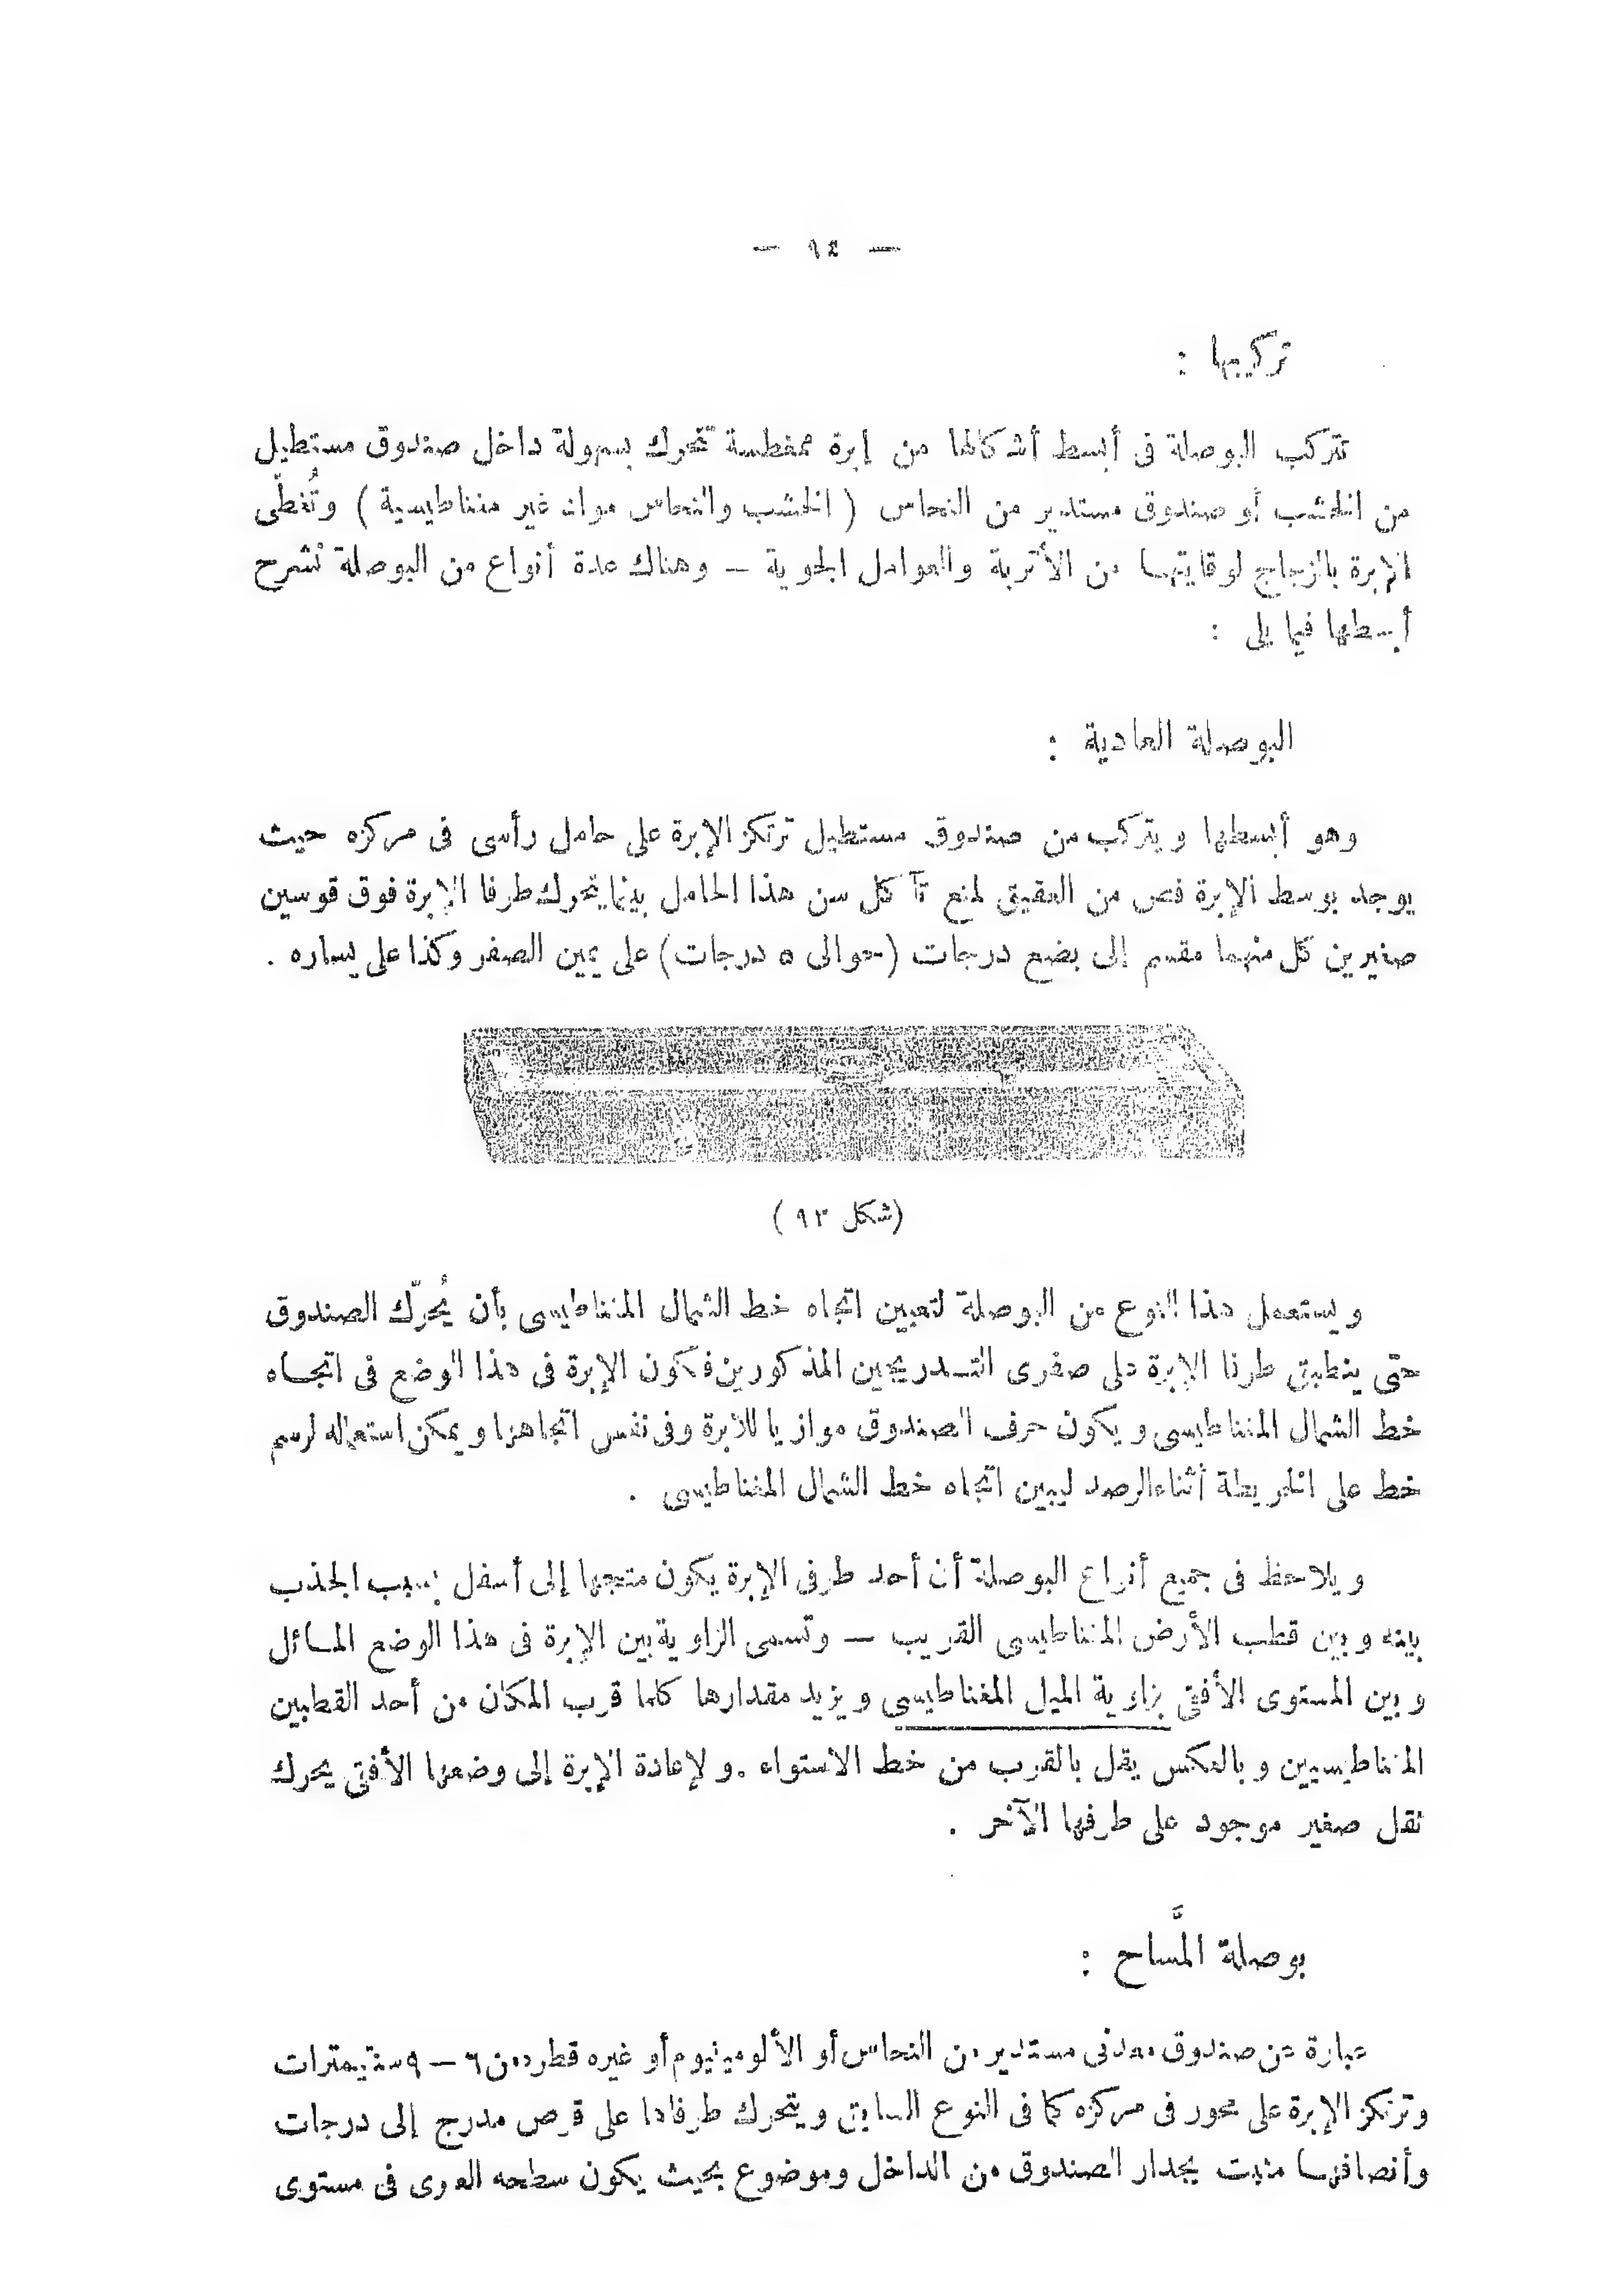 — ٩٤ —
تركيبها :
تتركب البوصلة فى أبسط أشكالها من إبرة ممغطسة تتحرك بسهولة داخل صندوق مستطيل
من الخشب أو صندوق مستدير من النحاس ( الخشب والنحاس مواد غير مغناطيسية ) وتُغطّى
الإبرة بالزجاج لوقايتها من الأتربة والعوامل الجوية — وهناك عدة أنواع من البوصلة نشرح
أبسطها فيما يلى :
البوصلة العادية :
وهو أبسطها ويتركب من صندوق مستطيل ترتكز الإبرة على حامل رأسى فى مركزه حيث
يوجد بوسط الإبرة فص من العقيق لمنع تآكل سن هذا الحامل بينما يتحرك طرفا الإبرة فوق قوسين
صغيرين كل منهما مقسم إلى بضع درجات (حوالى ٥ درجات) على يمين الصفر وكذا على يساره .
(شكل ٩٣ )
ويستعمل هذا النوع من البوصلة لتعيين اتجاه خط الشمال المغناطيسى بأن يُحرّك الصندوق
حتى ينطبق طرفا الإبرة على صفرى التدريجين المذكورين فتكون الإبرة فى هذا الوضع فى اتجاه
خط الشمال المغناطيسى ويكون حرف الصندوق موازيا للابرة وفى نفس اتجاهها ويمكن استعماله لرسم
خط على الخريطة أثناء الرصد ليبين اتجاه خط الشمال المغناطيسى .
ويلاحظ فى جميع أنواع البوصلة أن أحد طرفى الإبرة يكون متجها إلى أسفل بسبب الجذب
بينه وبين قطب الأرض المغناطيسى القريب — وتسمى الزاوية بين الإبرة فى هذا الوضع المائل
وبين المستوى الأفقى بزاوية الميل المغناطيسى ويزيد مقدارها كلما قرب المكان من أحد القطبين
المغناطيسيين وبالعكس يقل بالقرب من خط الاستواء . ولإعادة الإبرة إلى وضعها الأفقى يحرك
ثقل صغير موجود على طرفها الآخر .
بوصلة المَسَّاح :
عبارة عن صندوق معدنى مستدير من النحاس أو الألومينيوم أو غيره قطره من ٦ — ٩ سنتيمترات
وترتكز الإبرة على محور فى مركزه كما فى النوع السابق ويتحرك طرفاها على قرص مدرج إلى درجات
وأنصافها مثبت بجدار الصندوق من الداخل وموضوع بحيث يكون سطحه العلوى فى مستوى